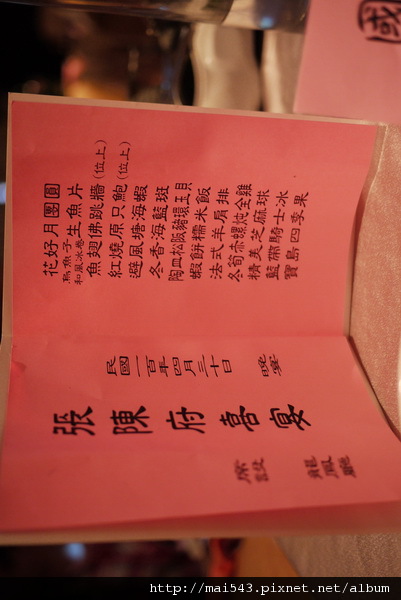 國
花好月團圓
烏魚子和風冰卷生魚片
魚翅佛跳牆(位上)
紅燒原只鮑(位上)
避風塘海蝦
冬香海藍斑
陶皿松阪豬環玉貝
蝦餅糯米飯
法式羊肩排
冬筍赤螺炖全雞
精美芝麻球
藍帶騎士冰
寶島四季果
民國一百年四月三十日 晚宴
張陳府喜宴
席設 龍鳳廳
http://mai543.pixnet.net/album